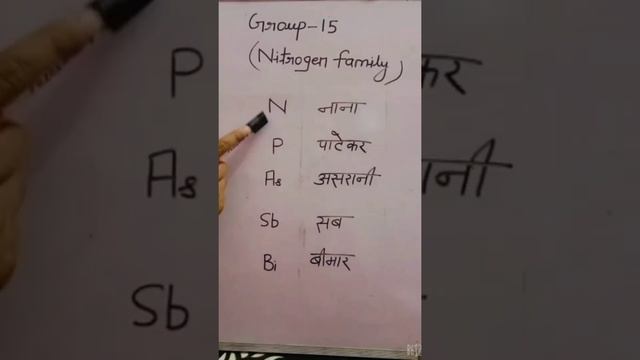 Group-15
(Nitrogen family)
N नाना
P पाटेकर
As असरानी
Sb सब
Bi बीमार